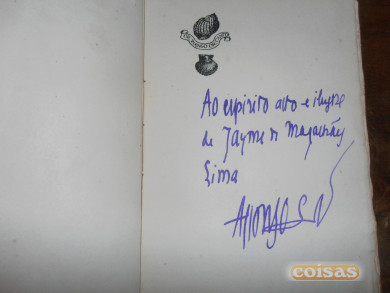 Ao espirito alto e ilustre
de Jayme de Magalhães
Lima
coisas